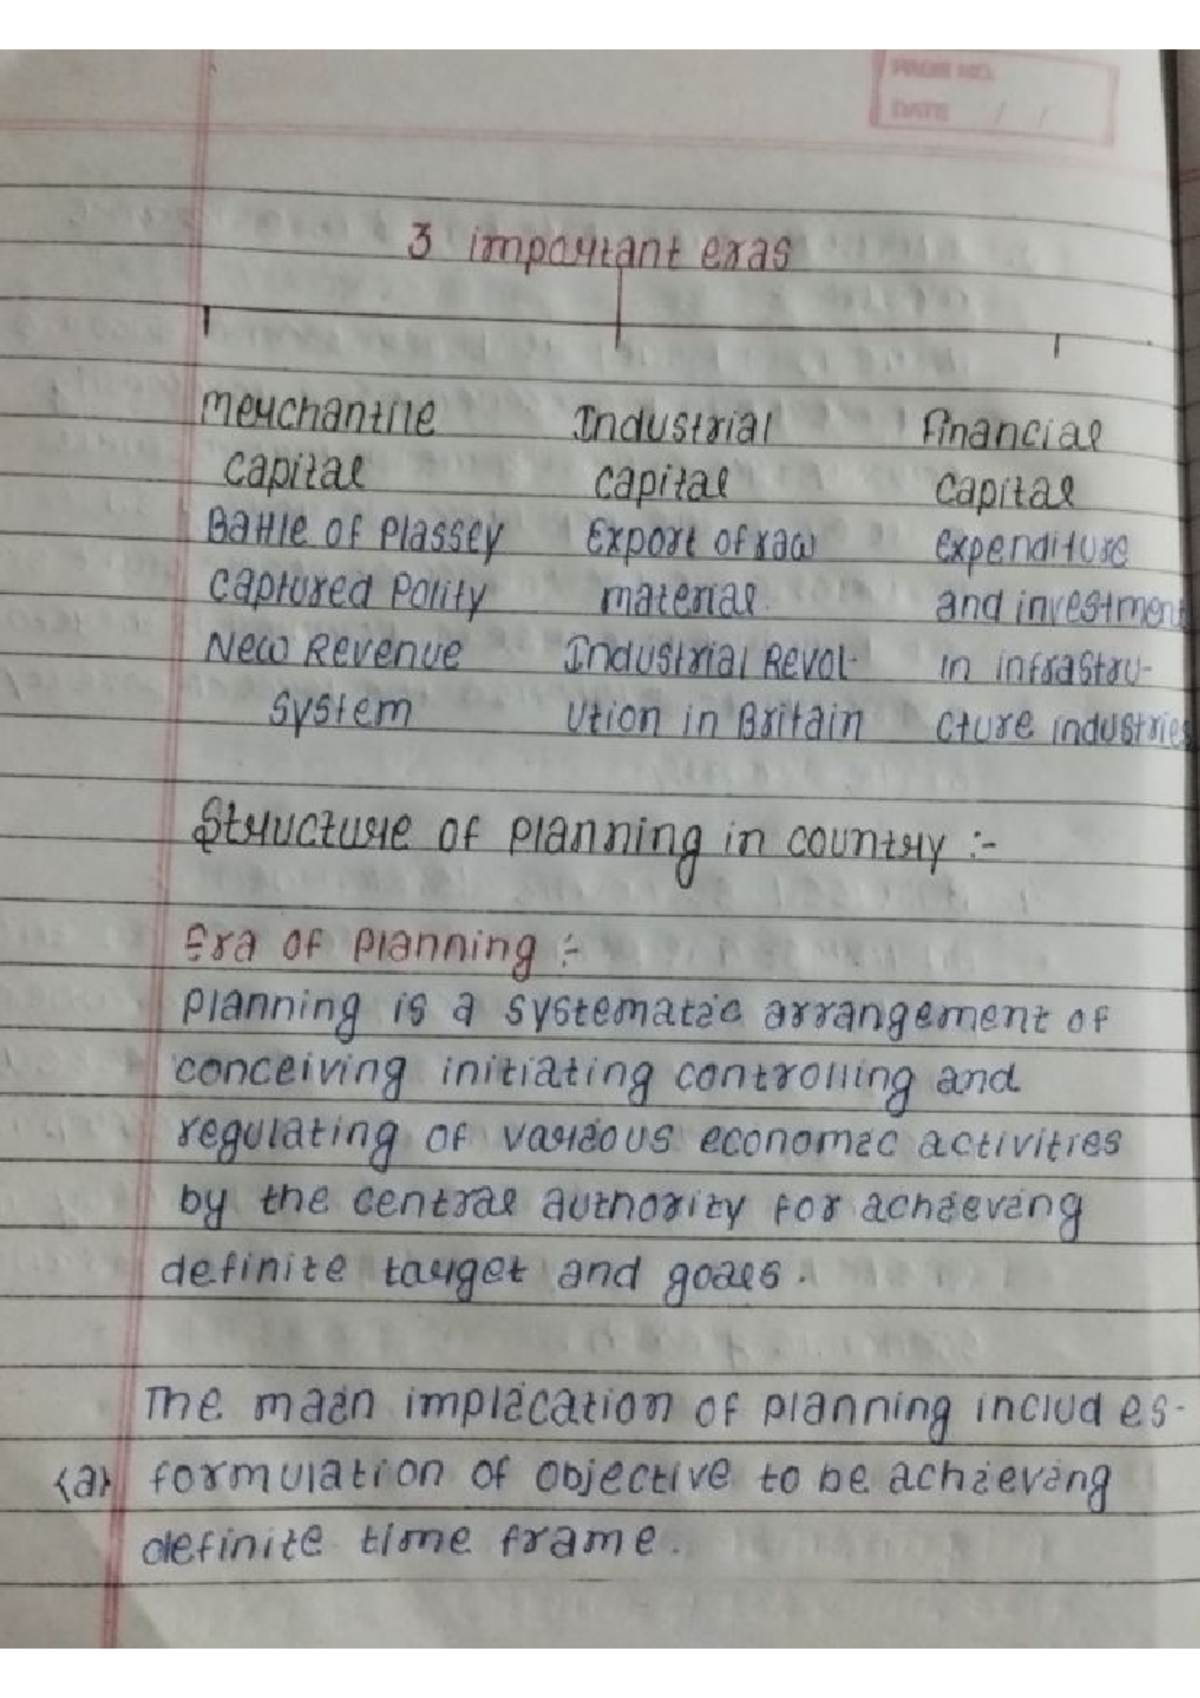 PAGE NO.
DATE / /
3 important eras
Merchantile Industrial Financial
capital capital capital
Battle of Plassey Export of raw expenditure
captured Polity material. and investment
New Revenue Industrial Revol- in infrastru-
system ution in Britain cture industries
Structure of planning in country :-
Era of planning :-
planning is a systematic arrangement of
conceiving initiating controlling and
regulating of various economic activities
by the central authority for achieving
definite target and goals.
The main implication of planning includes-
(a) formulation of objective to be achieving
definite time frame.